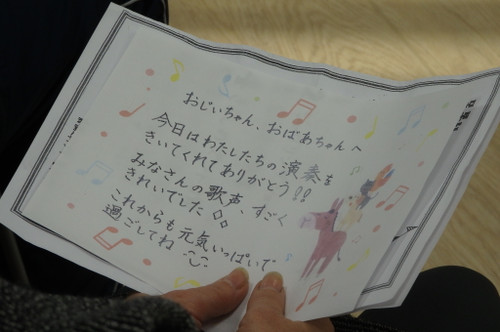 おじいちゃん、おばあちゃんへ
今日はわたしたちの演奏を
きいてくれてありがとう!!
みなさんの歌声、すごく
きれいでした
これからも元気いっぱいで
過ごしてね